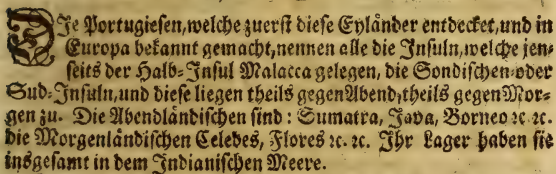 Die Portugiesen, welche zuerst diese Eyländer entdecket, und in
Europa bekannt gemacht, nennen alle die Insuln, welche jen-
seits der Halb-Insul Malacca gelegen, die Sondischen- oder
Sud-Insuln, und diese liegen theils gegen Abend, theils gegen Mor-
gen zu. Die Abendländischen sind: Sumatra, Java, Borneo ꝛc. ꝛc.
die Morgenländischen Celebes, Flores ꝛc. ꝛc. Ihr Lager haben sie
insgesamt in dem Indianischen Meere.